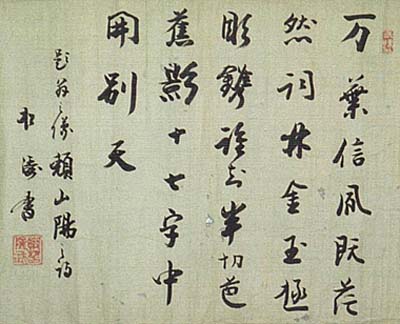 万葉信風既茫
然詞林金玉極
彫鐫誰知半切芭
蕉影十七字中
開別天
題翁之像 頼山陽之詩
書